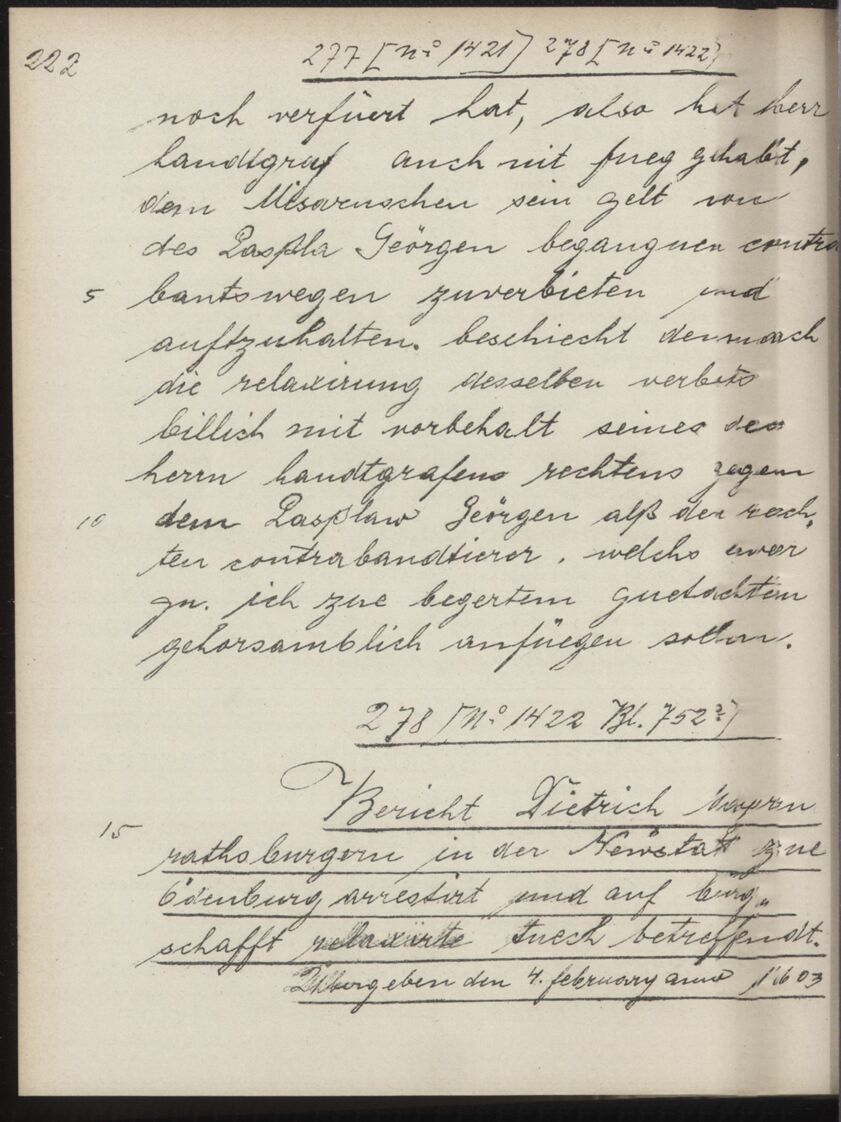 222
277 [Nº 1421] 278 [Nº 1422]
noch verfüert hat, also hat herr
landtgraf auch nit fueg gehabt,
dem sein gelt von
des Laßla Geörgen begangnen contra
5 bantswegen zuverbieten und
auftzuhalten. beschiecht demnach
die relaxirung desselben verbots
billich mit vorbehalt seines des
herrn landtgrafens rechtens gegen
10 dem Laßlaw Geörgen alß den rech,
ten contrabandtierer. welchs euer
gn. ich zue begertem guetachten
gehorsamblich anfüegen sollen.
278 [Nº 1422 Bl. 752]
Bericht Dietrich
15 rathsburgern in der Newstat zue
Ödenburg arrestirt und auf bürg„
schafft relaxirte tuech betreffendt.
Übergeben den 4. february anno 1603